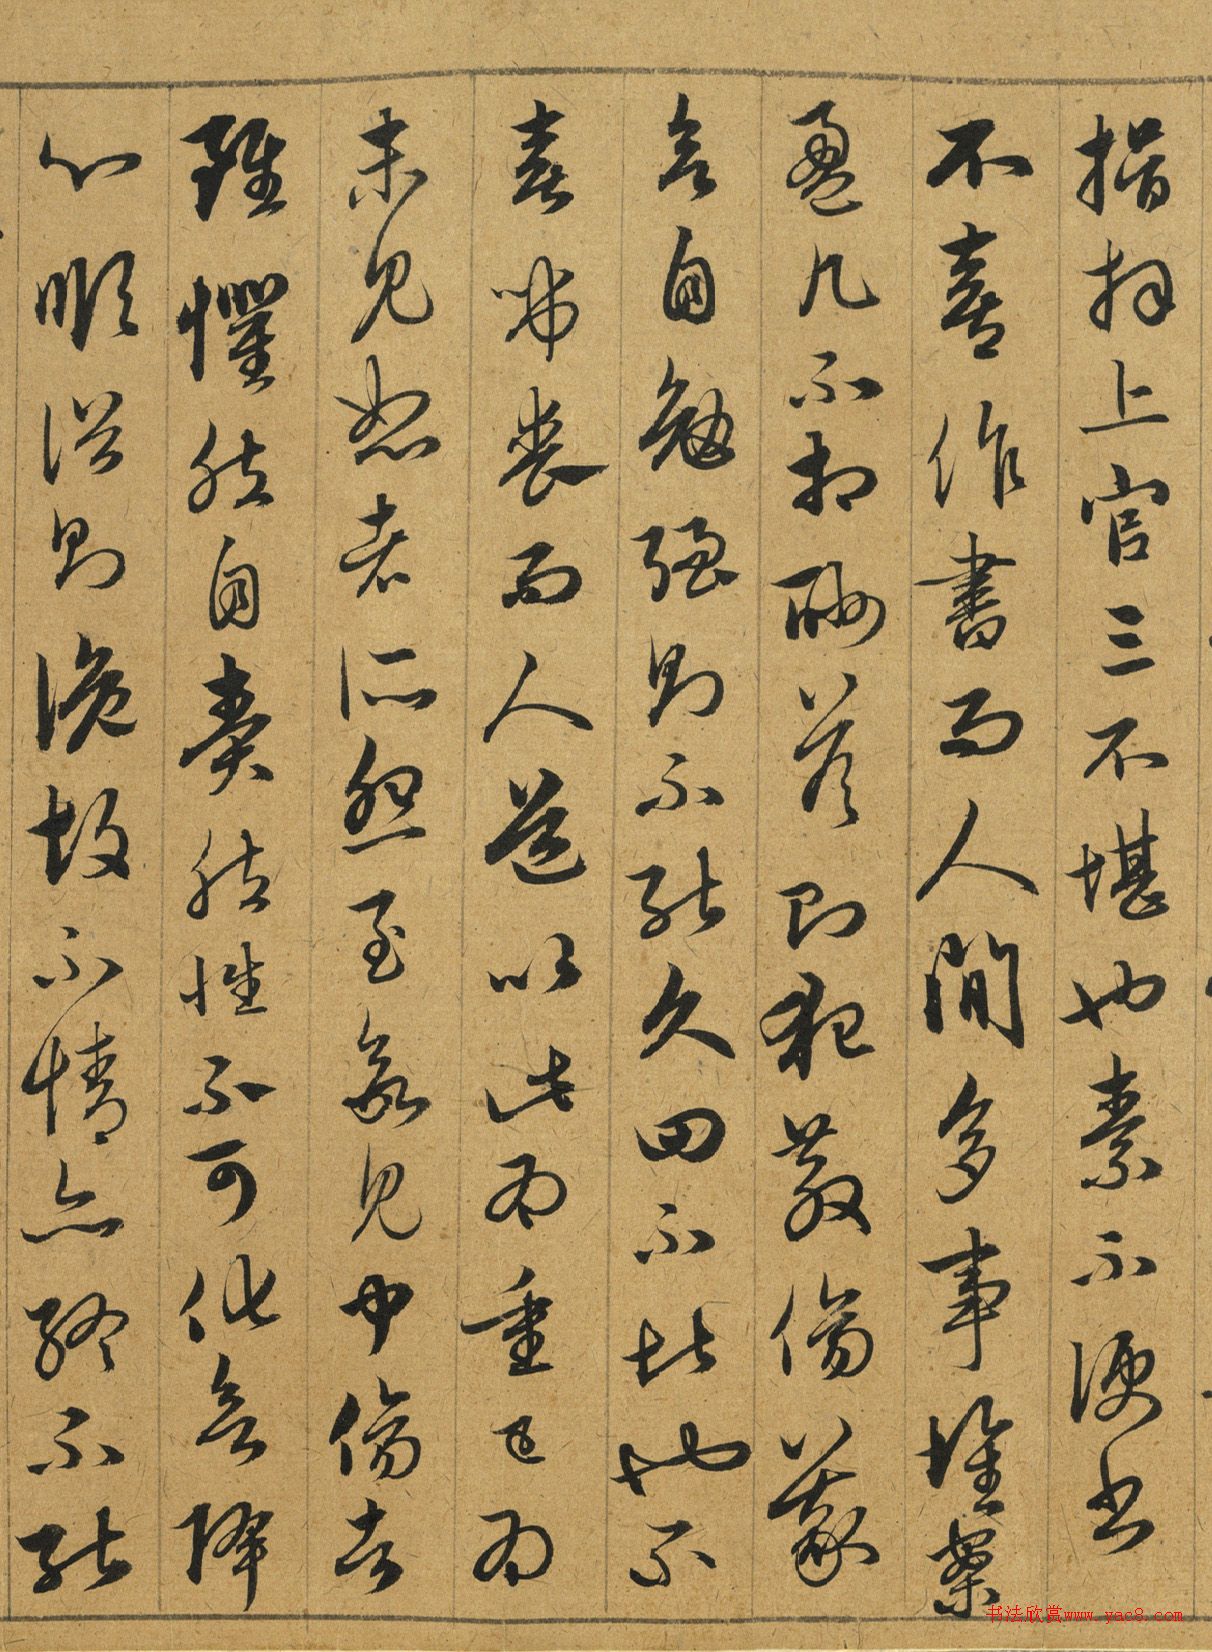 揖拜上官三不堪也素不便書
不喜作書而人間多事堆案
盈几不相酬答則犯教傷義
欲自勉強則不能久四不堪也不
喜吊喪而人道以此為重已為
未見恕者所怨至欲見中傷者
雖懼然自責然性不可化欲降
心順俗則詭故不情亦終不能
书法欣赏www.yac8.com